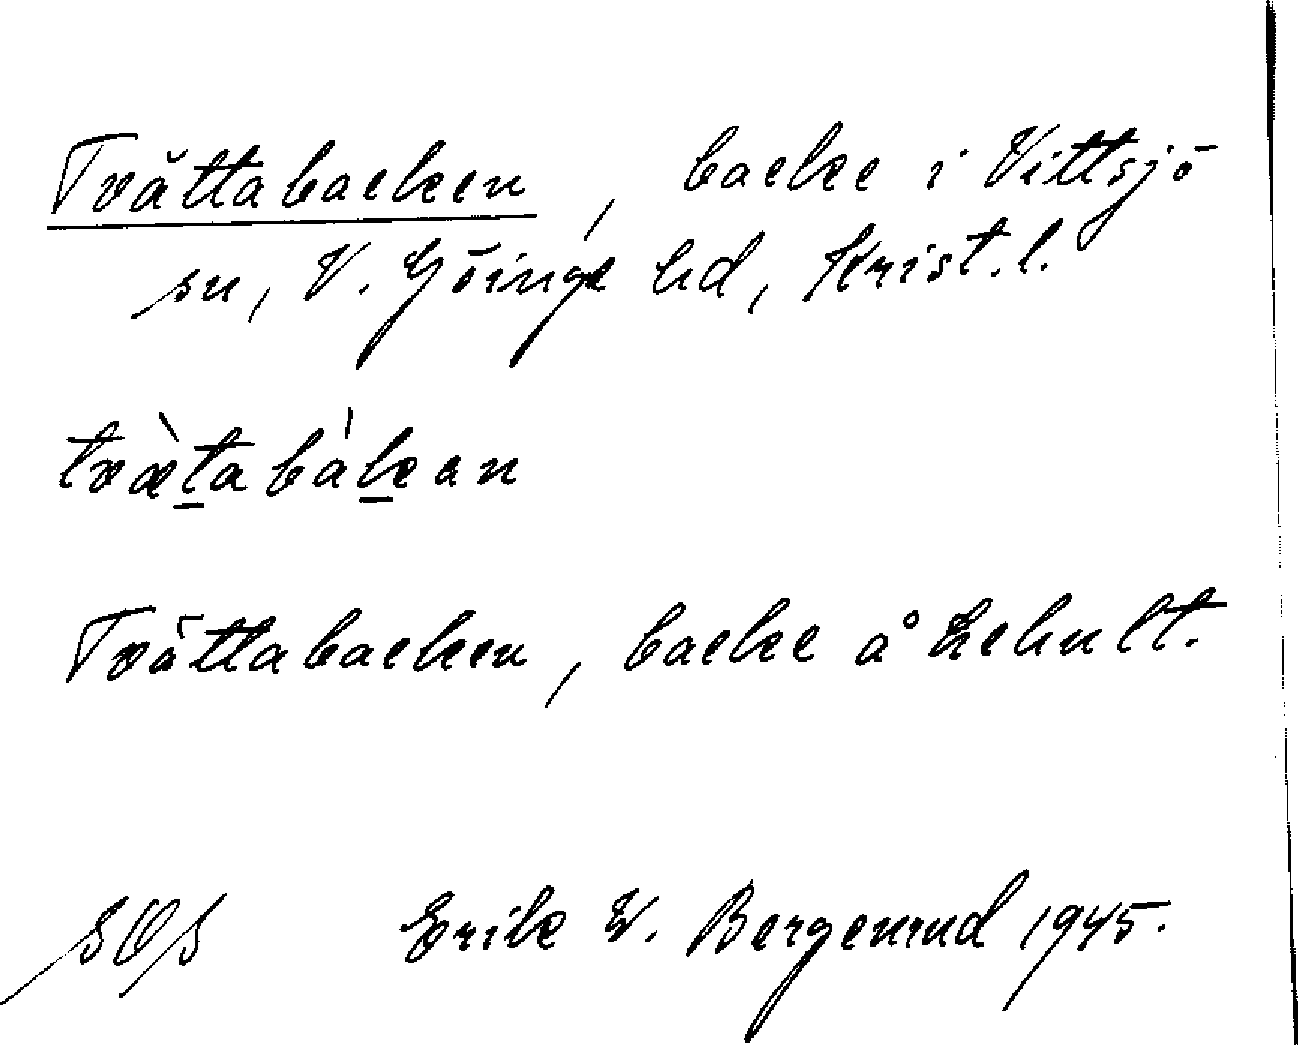 Tvättabacken, backe i Vittsjö
sn, V. Göinge hd, Krist. l.
tvætabákan
Tvättabacken, backe å Lehult.
SOS Erik W. Bergenrud 1945.